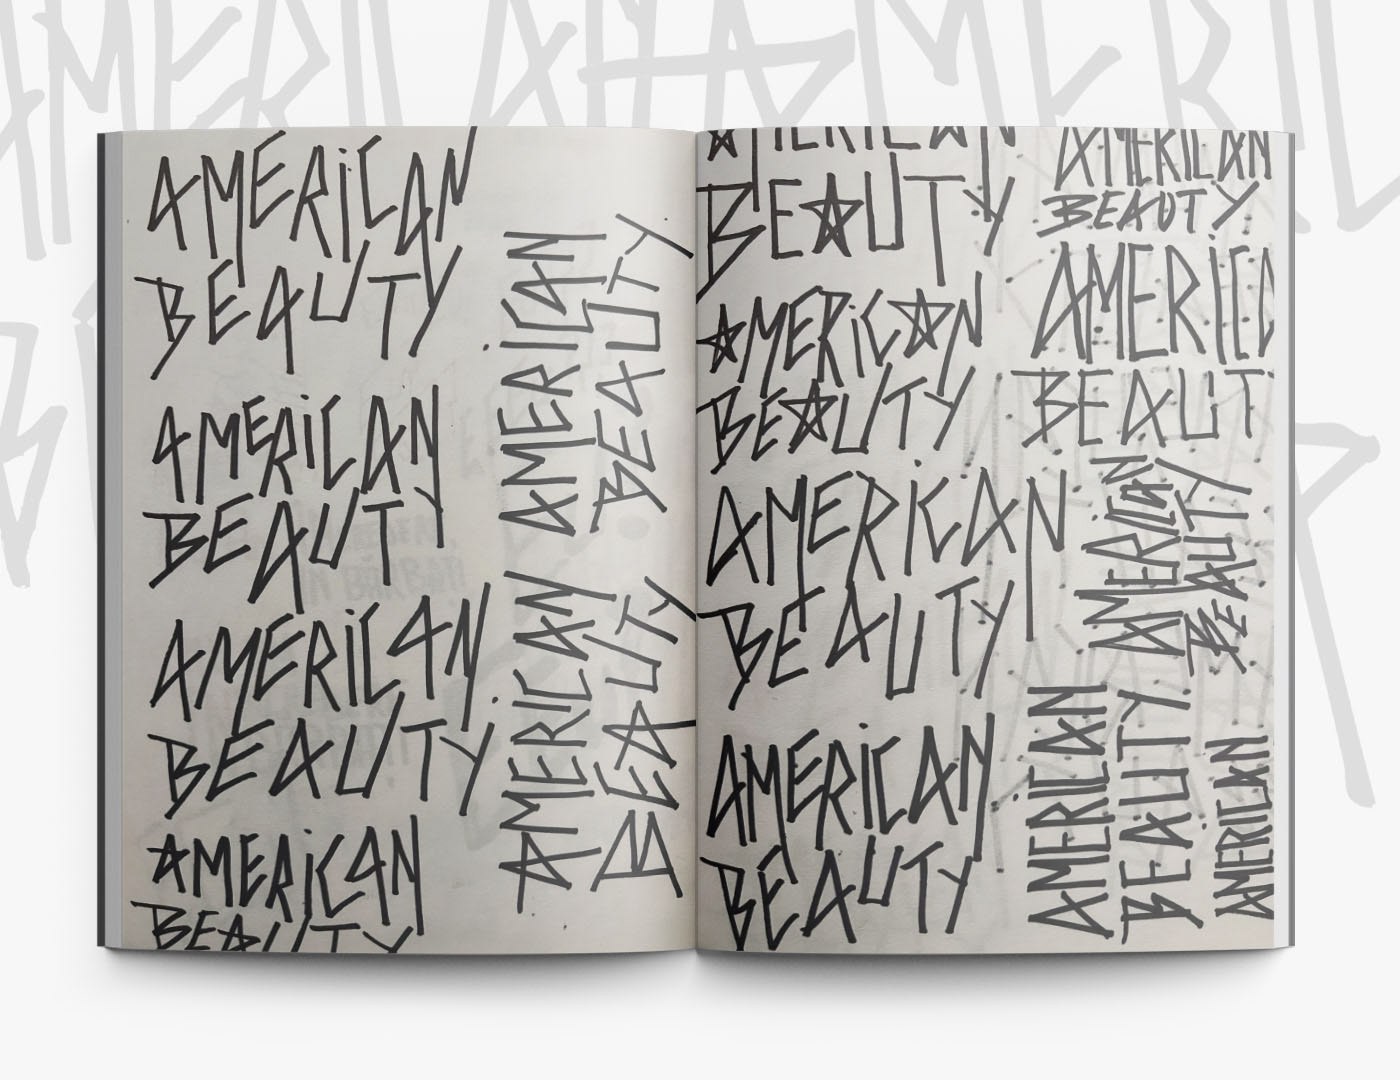 AMERiCAN
BEAUTY
AMERiCAN
BEAUTY
AMERiCAN
BEAUTY
AMERiCAN
BEAUTY
AMERICAN
BEAUTY
AMERICAN
BEAUTY
AMERICAN
BEAUTY
AMERiCAN
BEAUTY
AMERiCAN
BEAUTY
AMERiCAN
BEAUTY
AMERiCAN
BEAUTY
AMERiC
BEAUT
AMERICAN
BEAUTY
AMERICAN
BEAUTY
AMERICAN